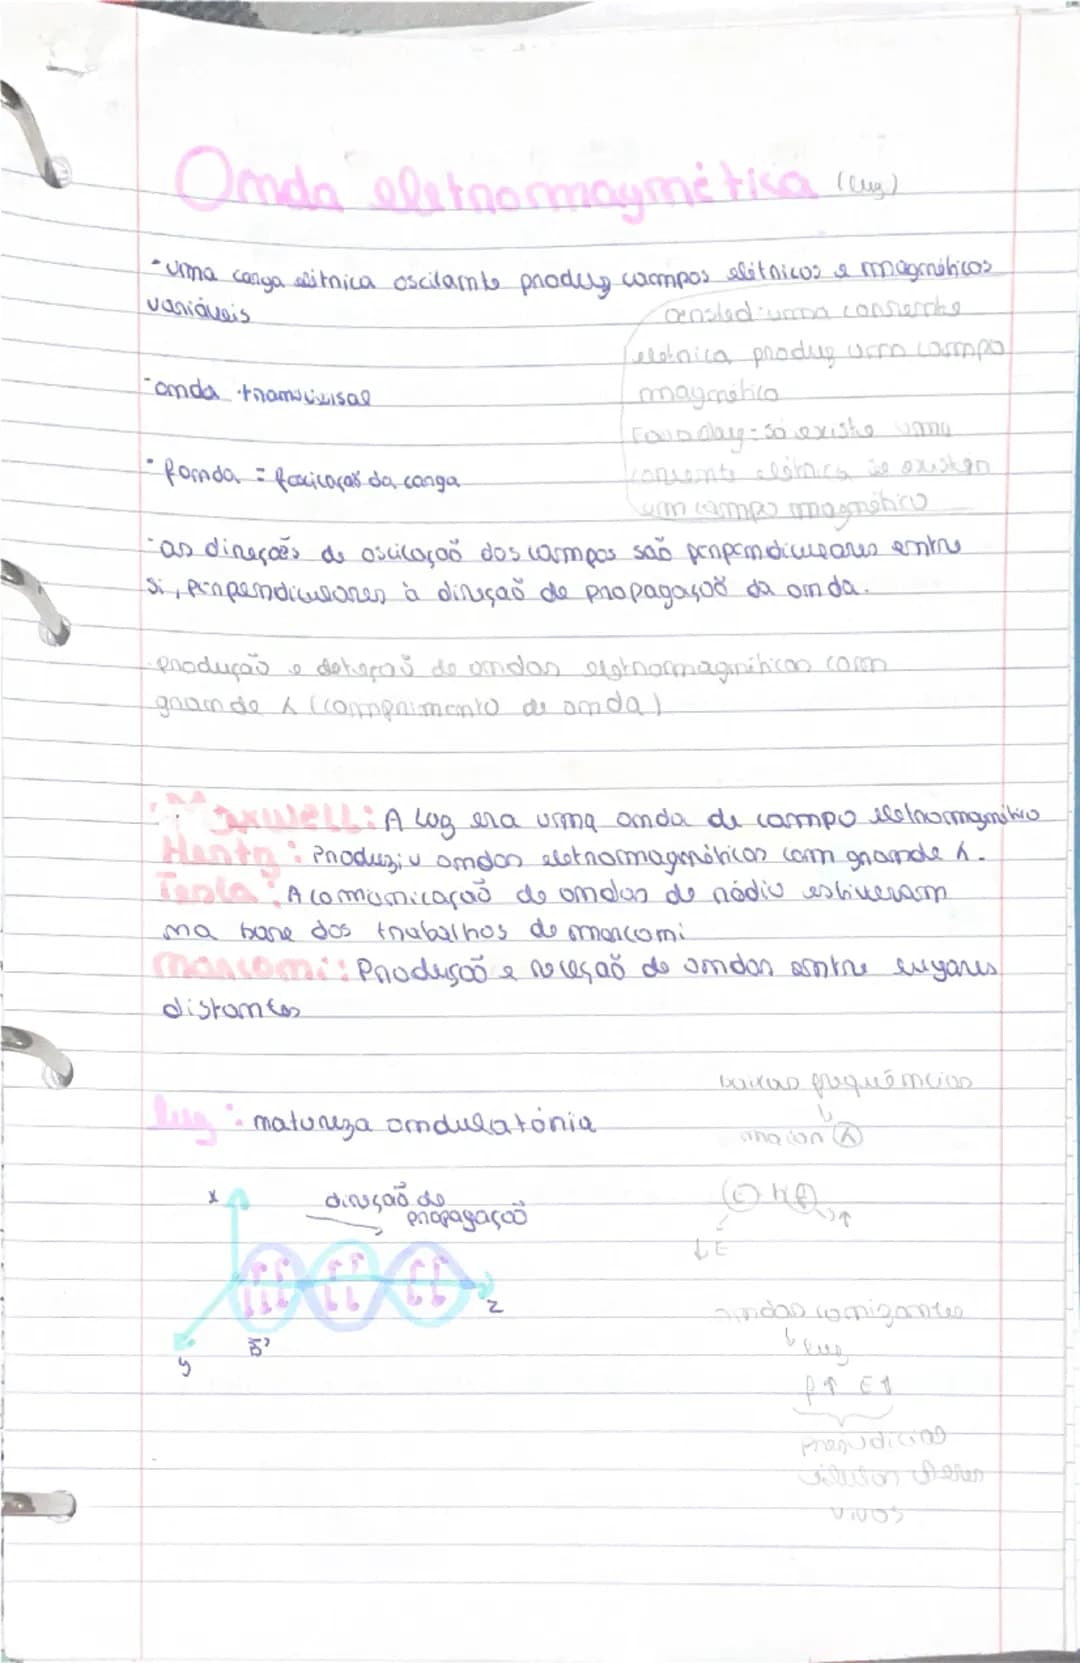 Onda eletromagnética (luz)
- uma carga elétrica oscilante produz campos elétricos e magnéticos
variáveis
oersted: uma corrente
eletrica produz um campo
magnético
- onda transversal
Faraday: só existe uma
corrente elétrica se existir
um campo magnético
- fonda = foscilação da carga
- as direções de oscilação dos campos são perpendiculares entre
si, perpendiculares à direção de propagação da onda.
- produção e deteção de ondas eletromagnéticas com
grande λ (comprimento de onda)
Maxwell: A luz era uma onda de campo eletromagnético
Hertz: Produziu ondas eletromagnéticas com grande λ.
Tesla: A comunicação de ondas de rádio estiveram
na base dos trabalhos de marconi
Marconi: Produção e receção de ondas entre lugares
distantes
baixas frequências
↓
luz: natureza ondulatória
maior λ
x
direção de
propagação
E hf
↑
↓E
z
B
y
ondas ionizantes
↳ luz
f↑ E↑
prejudiciais
seres
vivos